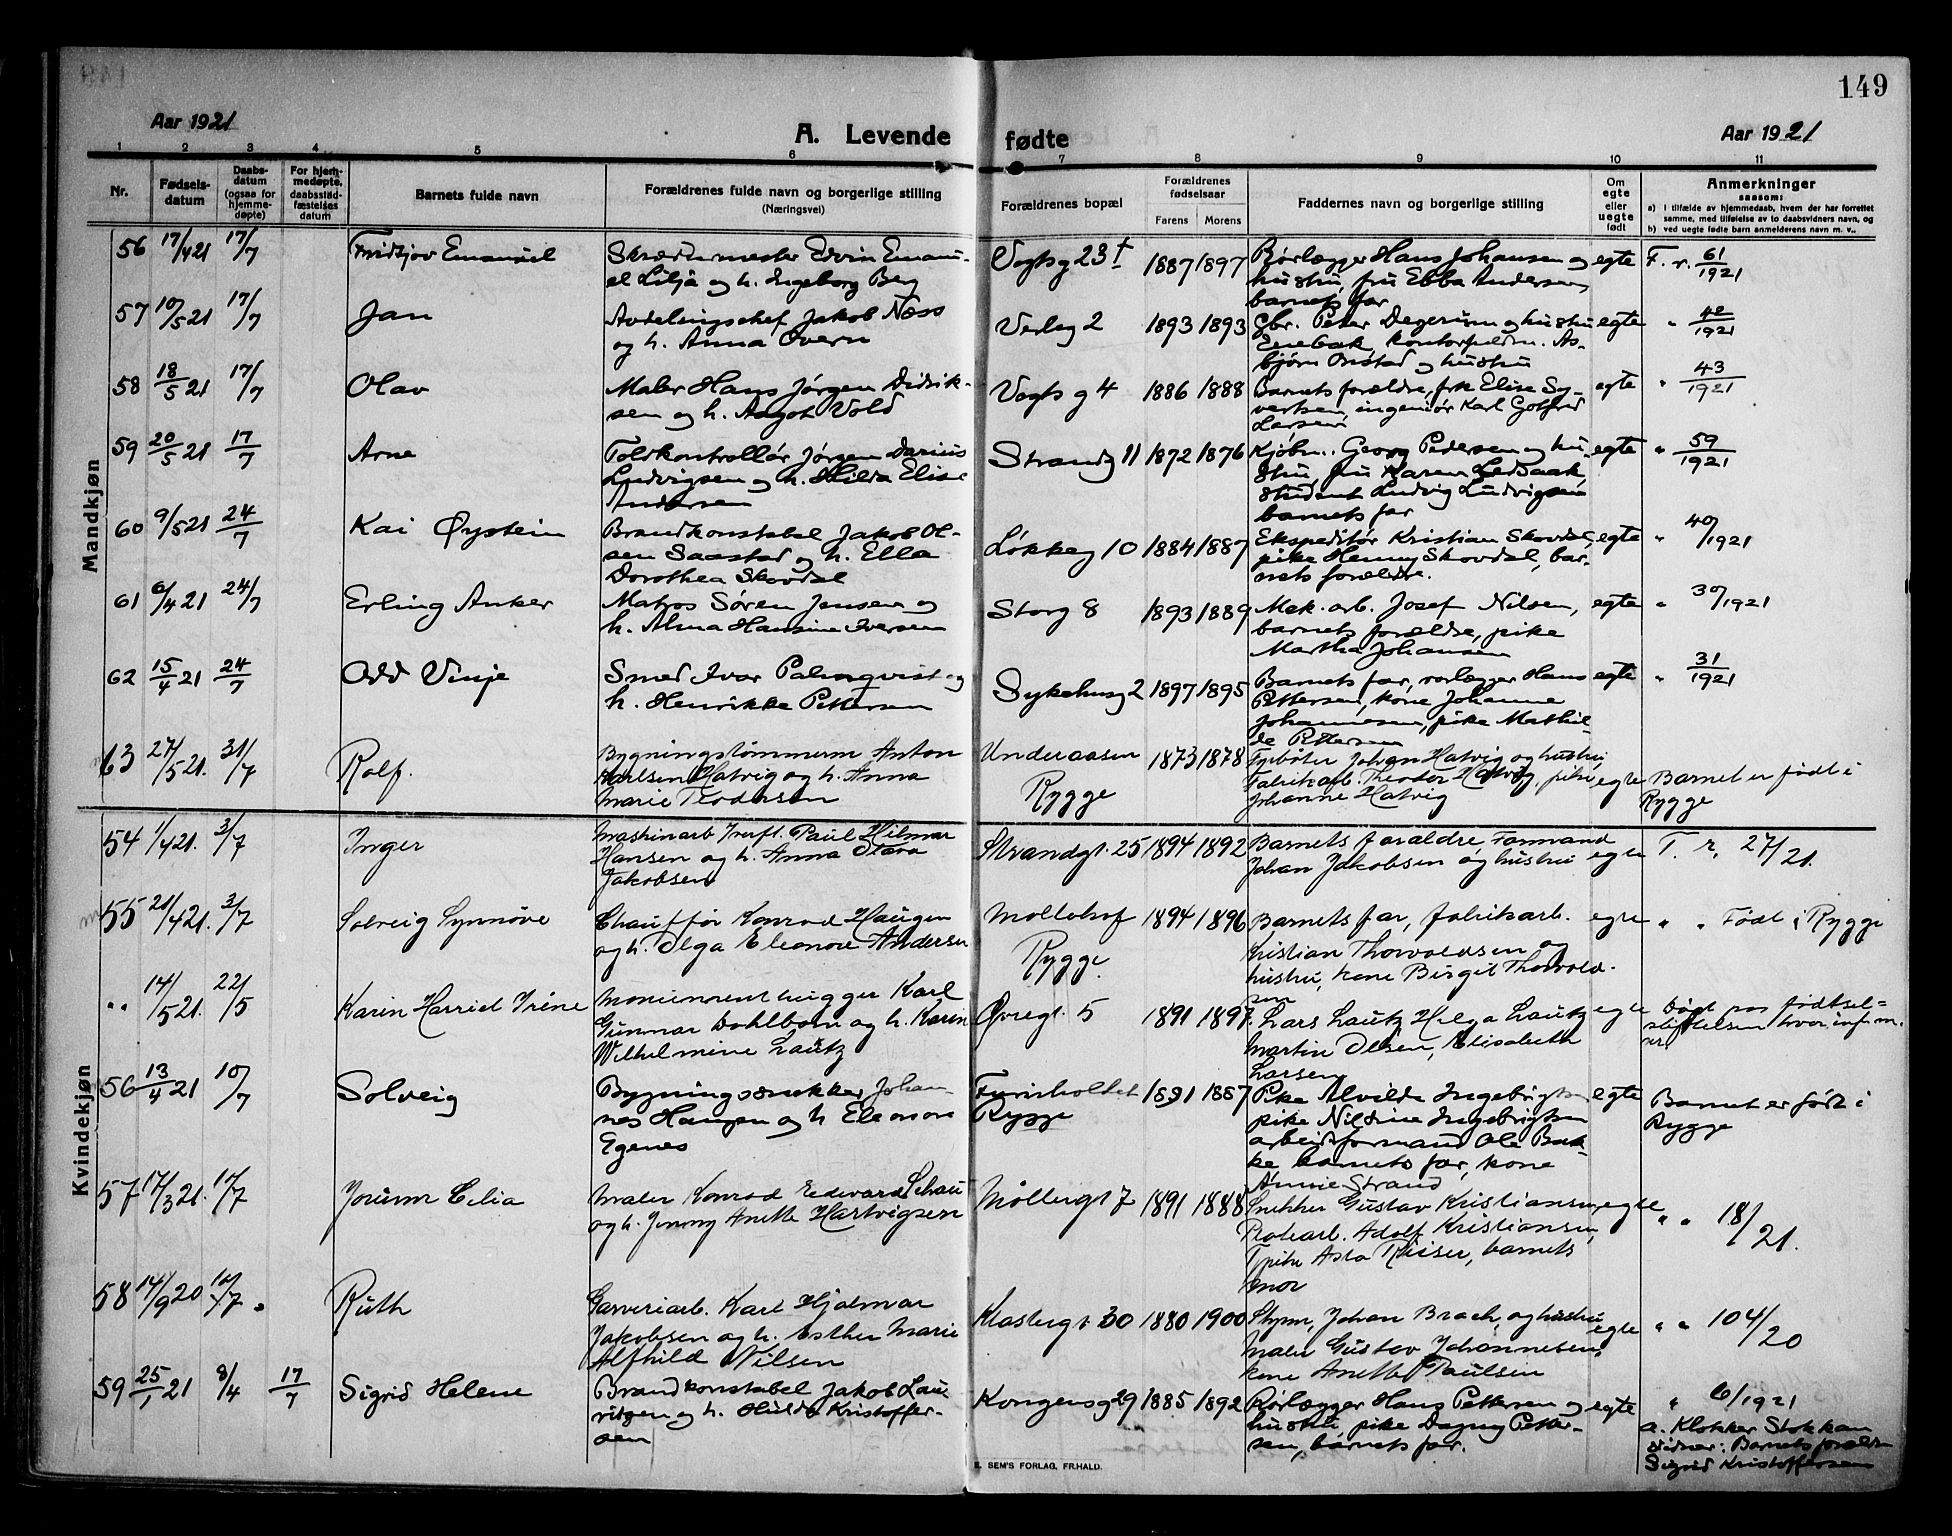 149
Aar 1921
A. Levende fødte
Aar 1921
1 2 3 4 5 6 7 8 9 10 11
Nr.
Fødsels-
datum
Daabs-
datum
(ogsaa for
hjemme-
døpte)
For hjem-
medøpte,
daabsstad-
fæstelses
datum
Barnets fulde navn
Forældrenes fulde navn og borgerlige stilling
(Næringsvei)
Forældrenes bopæl
Forældrenes
fødselsaar
Farens Morens
Faddernes navn og borgerlige stilling
Om
egte
eller
uegte
født
Anmerkninger
saasom:
a) i tilfælde av hjemmedaab, hvem der har forrettet
samme, med tilføielse av to daabsvidners navn, og
b) ved uegte fødte barn anmelderens navn m. v..
Mandkjøn
56 17/4 21 17/7 Fridtjov Emanuel
Skræddermester Edvin Emanu-
el Lilja og h. Ingeborg Berg
Vogtsg 23 1887 1897
Rørlægger Hans Johansen og
hustru, fru Ebba Andersen,
barnets far
egte F. r. 61/1921
57 10/5 21 17/7 Jan
Avdelingschef Jakob Næss
og h. Anna Overn
Verksg 2 1893 1893
Gbr. Peter Degerum og hustru
Enebak, kontorfuldm. As-
bjørn Onstad og hustru
egte " 42/1921
58 18/5 21 17/7 Olav
Maler Hans Jørgen Didrik-
sen og h. Aagot Vold
Vogts g 4 1886 1888
Barnets forældre, frk Elise Sy-
vertsen, ingeniør Karl Gotfred
Larsen
egte " 43/1921
59 20/5 21 17/7 Arne
Toldkontrollør Jørgen Darius
Ludvigsen og h. Hilda Elise
Andersen
Strandg 11 1872 1876
Kjøbm. Georg Pedersen og hu-
stru, fru Karen Ledsaak,
student Ludvig Ludvigsen
barnets far
egte " 59/1921
60 9/5 21 24/7 Kai Øystein
Brandkonstabel Jakob Ol-
sen Saastad og h. Ella
Dorothea Skovdal
Løkkeg 10 1884 1887
Ekspeditør Kristian Skovdal,
pike Henny Skovdal, bar-
nets forældre.
egte " 40/1921
61 6/4 21 24/7 Erling Anker
Matros Søren Jensen og
h. Alma Hansine Iversen
Storg 8 1893 1889
Mek. arb. Josef Nilsen,
barnets forældre, pike
Martha Johansen
egte " 30/1921
62 15/4 21 24/7 Odd Vinje
Smed Ivar Palmqvist og
h. Henrikke Pettersen
Sykehusg 2 1897 1895
Barnets far, rørlægger Hans
Pettersen, kone Johanne
Johannesen, pike Mathil-
de Pettersen
egte " 31/1921
63 27/5 21. 31/7 Rolf.
Bygningstømmerm Anton
Karlsen Hatvig og h. Anna
Marie Teodorsen
Underaasen
Rygge
1873 1878
Johan Hatvig og hustru,
Fabrikarb. Theodor Hatvig, pike
Johanne Hatvig
egte Barnet er født i
Rygge
Kvindekjøn
54 1/4 21. 3/7 Inger
Paul Hilmar
Hansen og h. Anna Olava
Jakobsen
Strandgt. 25 1894 1892
Barnets forældre, Formand
Johan Jakobsen og hustru
egte F. r. 27/21.
55 21/4 21. 3/7 Solveig Synnøve
Chauffør Konrad Haugen
og h. Olga Eleonore Andersen
Moltohof
Rygge.
1894 1896
Barnets far, fabrikarb.
Kristian Thorvaldsen og
hustru, kone Birgit Thorvald-
sen
egte " " Født i Rygge
" 14/5 21. 22/5 Karin Harried Iréne
Monumenthugger Karl
Gunnar Dahlbom og h. Karin
Wilhelmine Lautz
Øvregt. 5 1891 1897.
Lars Lautz, Helga Lautz
Martin Olsen, Elisabeth
Larsen
egte Døpt paa fødsel-
stiftelsen, hvor inf. m.
nr.
56 13/4 21 10/7 Solveig
Bygningssnekker Johan-
nes Haugen og h Eleonore
Egenes
Furuholdtet
Rygge
1891 1887
Pike Alvilde Ingebrigtsen
pike Nildine Ingebrigtsen
arbeidsformand Ole Bak-
ke barnets far, kone
Annie Strand
egte Barnet er født i
Rygge
57 17/3 21. 17/7 Jorunn Celia
Maler Konrad Edvard Schau
og h. Jenny Anette Hartvigsen
Møllergt 7 1891 1888
Snekker Gustav Kristiansen,
Adolf Kristiansen,
pike Asta Riiser, barnets
mor
egte " " 18/21.
58 14/9 20 10/7 Ruth
Garveriarb. Karl Hjalmar
Jakobsen og h. Esther Marie
Alfhild Nilsen
Klostergt 30 1880 1900
Styrm, Johan Brach, og hustru
Maler Gustav Johannesen,
kone Anette Paulsen
egte " " 104/20
59 25/1 21 8/4 17/7 Sigrid Helene
Brandkonstabel Jakob Lau-
ritzen og h. Hulda Kristoffer-
sen
Kongensg 29 1885 1892
Rørlægger Hans Pettersen og
hustru, pike Dagny Petter-
sen, barnets far.
egte " 6/1921
a. Klokker Stokkan
vidner: Barnets forældre
Sigrid Kristoffersen
E. SEM'S FORLAG, FR.HALD.